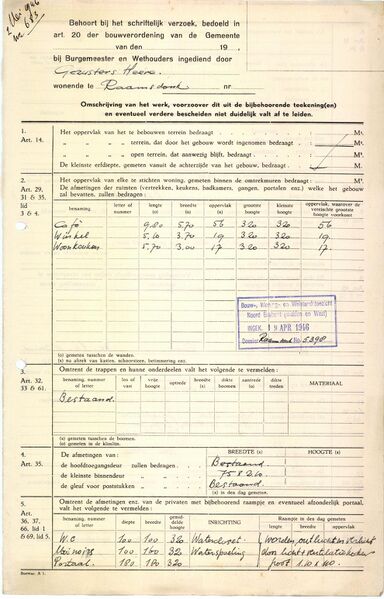 2 Mei 1946
no 683
Behoort bij het schriftelijk verzoek, bedoeld in
art. 20 der bouwverordening van de Gemeente
van den 19 ,
bij Burgemeester en Wethouders ingediend door
Gezusters Heere.
wonende te Raamsdonk nr
Omschrijving van het werk, voorzover dit uit de bijbehoorende teekening(en)
en eventueel verdere bescheiden niet duidelijk valt af te leiden.
1.
Art. 14.
Het oppervlak van het te bebouwen terrein bedraagt M².
„ „ „ terrein, dat door het gebouw wordt ingenomen bedraagt M².
„ „ „ open terrein, dat aanwezig blijft, bedraagt M².
De kleinste erfdiepte, gemeten vanaf de achterzijde van het gebouw, bedraagt M.
2.
Art. 29,
31 & 35.
lid
3 & 4.
Het oppervlak van elke te stichten woning, gemeten binnen de omtrekmuren bedraagt M².
De afmetingen der ruimten (vertrekken, keukens, badkamers, gangen, portalen enz.) welke het gebouw
zal bevatten, zullen bedragen:
benaming letter of nummer lengte (a) breedte (a) oppervlak grootste hoogte kleinste hoogte oppervlak, waarover de vereischte grootste hoogte voorkomt
Café 9.80 5.70 56 320 320 56
Winkel 5.10 3.70 19 320 320 19.
Woonkeuken 5.70 3.00 17 320 320 17.
Bouw-, Woning- en Welstandstoezicht
Noord Brabant (midden en West)
INGEK. 19 APR 1946
Dossier Raamsdonk No. 5398
(a) gemeten tusschen de wanden.
(b) na aftrek van kasten, schoorsteen, betimmering enz.
3.
Art. 32,
33 & 61.
Omtrent de trappen en hunne onderdeelen valt het volgende te vermelden:
benaming, nummer of letter los of vast hoogte optrede breedte (a) dikte boomen aantrede (b) dikte treden MATERIAAL
Bestaand.
(a) gemeten tusschen de boomen.
(b) gemeten in de klimlijn.
4.
Art. 35.
De afmetingen van: BREEDTE (a) HOOGTE (a)
de hoofdtoegangsdeur zullen bedragen Bestaand.
de kleinste binnendeur „ „ 75 & 210
de gleuf voor poststukken „ „ Bestaand.
(a) in den dag gemeten.
5.
Art. 36,
37, 66,
66 lid 1
& 69, lid 5.
Omtrent de afmetingen enz. van de privaten met bijbehoorend raampje en eventueel afzonderlijk portaal,
valt het volgende te vermelden:
benaming, nummer of letter diepte breedte gemiddelde hoogte INRICHTING Raampje in den dag gemeten lengte hoogte
W.C 100 100 320 Watercloset worden
Urinoirs 100 160 320 Waterspoeling
Portaal 180 320